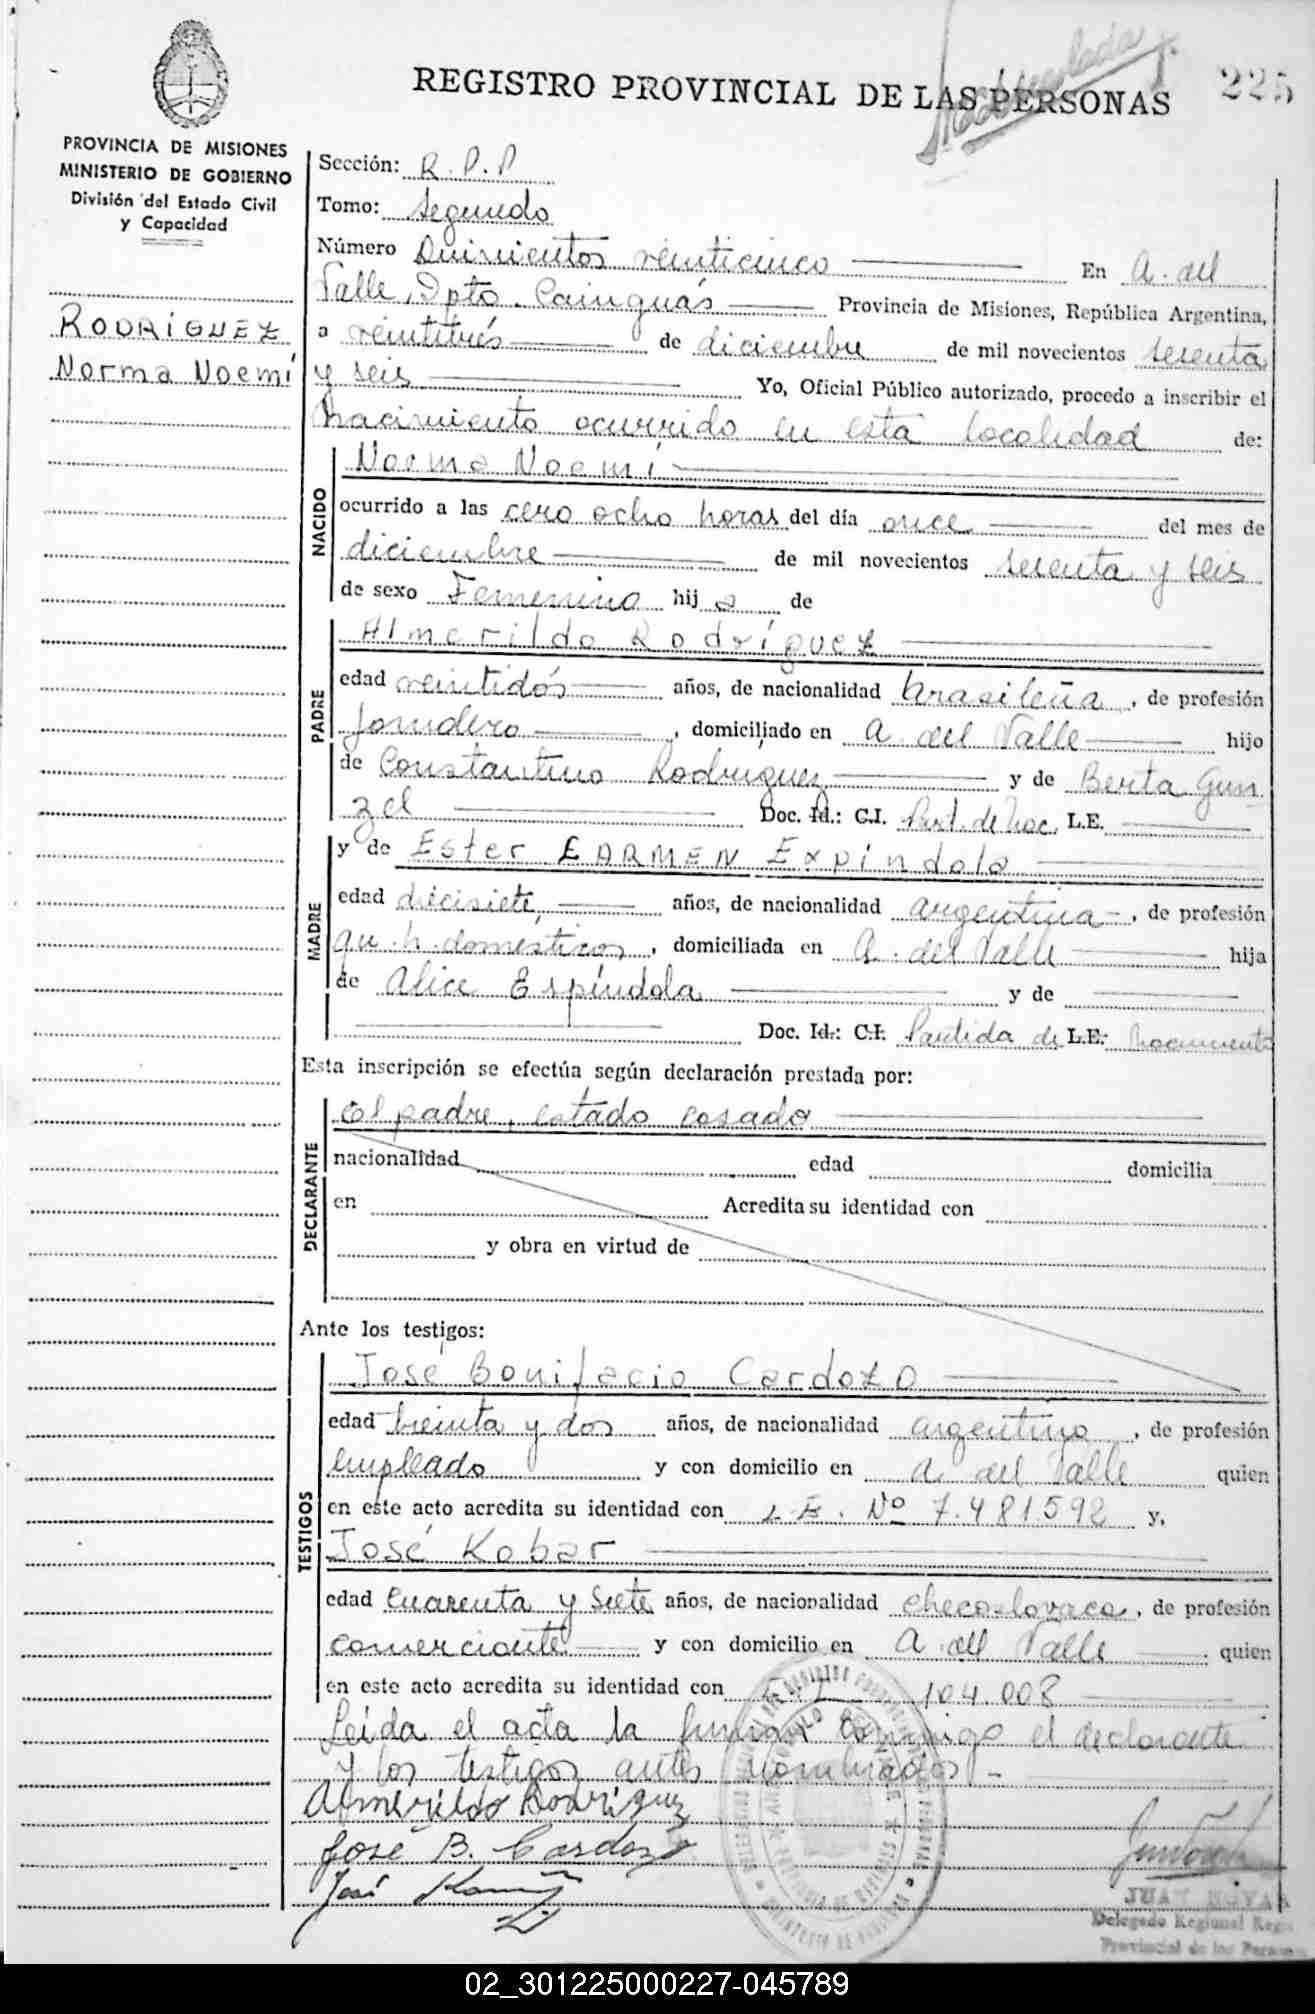 225
REGISTRO PROVINCIAL DE LAS PERSONAS
PROVINCIA DE MISIONES
MINISTERIO DE GOBIERNO
División del Estado Civil
y Capacidad
RODRÍGUEZ
Norma Noemí
Sección: R.P.P
Tomo: Segundo
Número Quinientos veinticinco En A. del
Valle, Dpto. Cainguás Provincia de Misiones, República Argentina,
a veintitrés de diciembre de mil novecientos sesenta
y seis Yo, Oficial Público autorizado, procedo a inscribir el
nacimiento ocurrido en esta localidad de:
NACIDO
Norma Noemí
ocurrido a las cero ocho horas del día once del mes de
diciembre de mil novecientos sesenta y seis
de sexo Femenino hij a de
PADRE
Almerildo Rodríguez
edad veintidós años, de nacionalidad brasileña, de profesión
jornalero, domiciliado en A. del Valle hijo
de Constantino Rodríguez y de Berta Gun
zel Doc. Id.: C.I. Part. de Nac. L.E.
MADRE
y de Ester CARMEN Expíndola
edad diecisiete años, de nacionalidad argentina, de profesión
qu. h. domésticos, domiciliada en A. del Valle hija
de Alice Espíndola y de
Doc. Id.: C.I. Partida de L.E. Nacimiento
Esta inscripción se efectúa según declaración prestada por:
DECLARANTE
el padre, estado casado
nacionalidad edad domicilia
en Acredita su identidad con
y obra en virtud de
Ante los testigos:
TESTIGOS
José Bonifacio Cardozo
edad treinta y dos años, de nacionalidad argentino, de profesión
empleado y con domicilio en A. del Valle quien
en este acto acredita su identidad con L.E. Nº 7.481.592 y,
José Kobar
edad cuarenta y siete años, de nacionalidad checoslovaca, de profesión
comerciante y con domicilio en A. del Valle quien
en este acto acredita su identidad con 104.008
Leída el acta la firman conmigo el declarante
y los testigos antes nombrados.-
Almerildo Rodríguez
José B. Cardozo
José
JUAN
Delegado Regional Reg
Provincial de las Personas
02_301225000227-045789